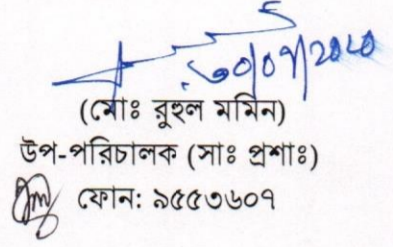 ৩০/০৭/২০২০
(মোঃ রুহুল মমিন)
উপ-পরিচালক (সাঃ প্রশাঃ)
ফোন: ৯৫৫৩৬০৭